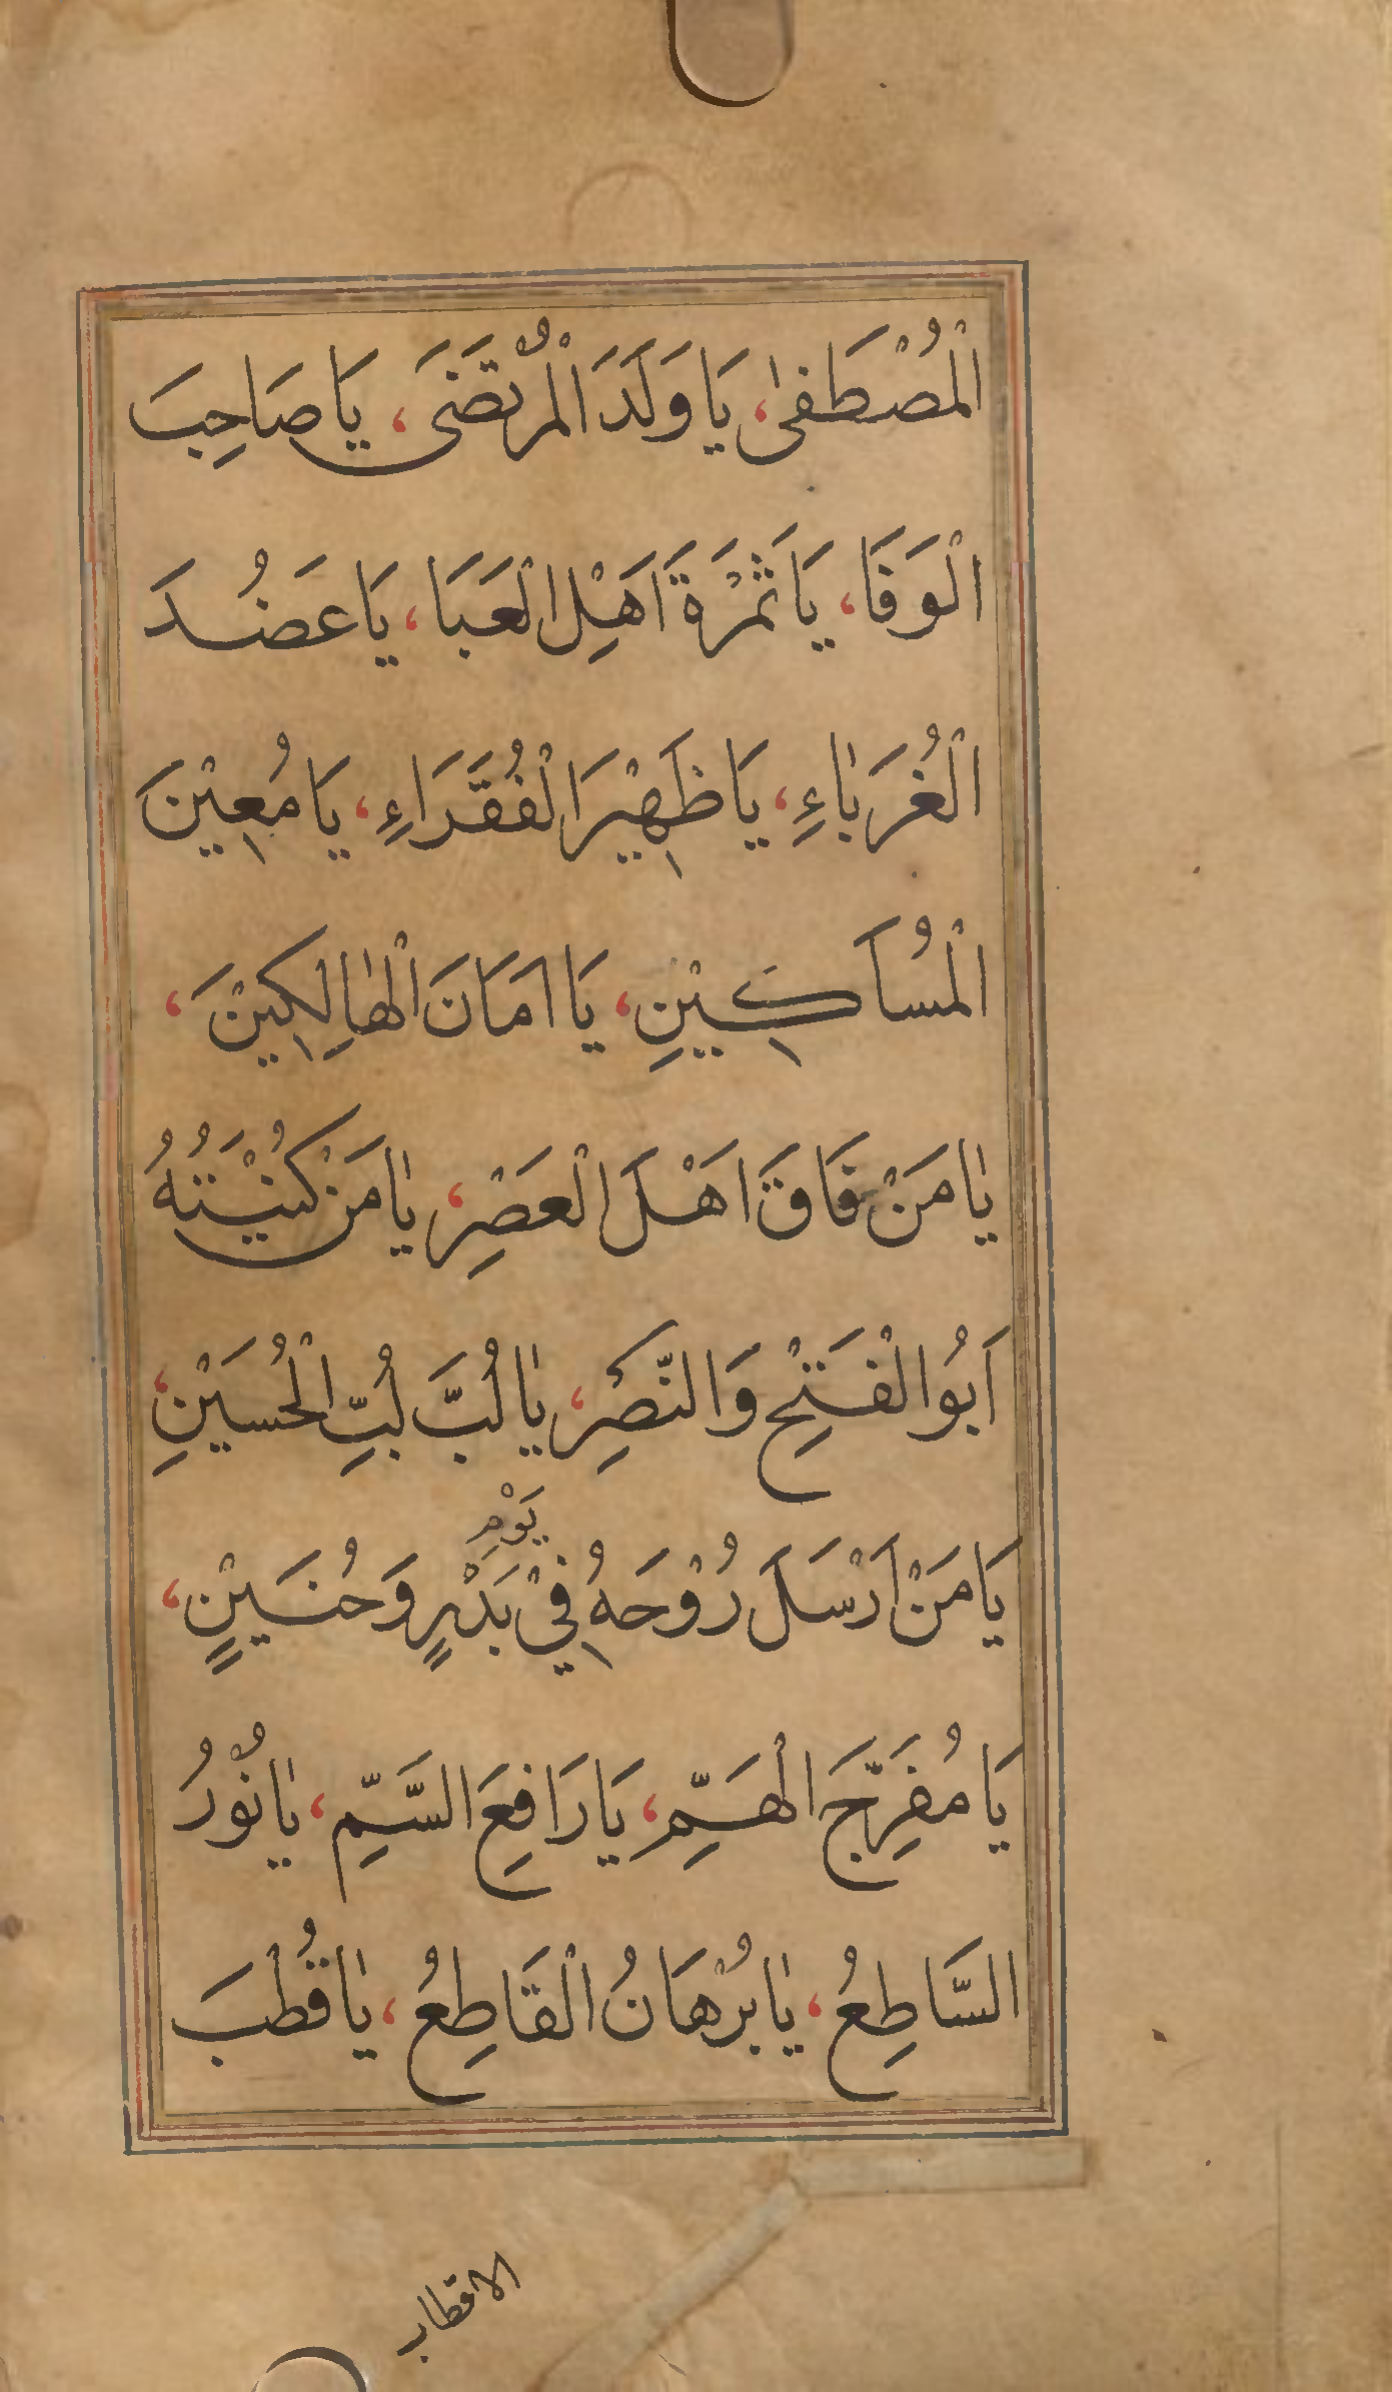 الْمُصْطَفٰى، يَا وَلَدَ الْمُرْتَضَى، يَا صَاحِبَ
الْوَفَا، يَا ثَمَرْةَ اَهْلِ الْعَبَا، يَا عَضُدَ
الْغُرَبٰاءِ، يَا ظَهِيْرَ الْفُقَرَاءِ، يَا مُعِيْنَ
الْمُسَاكِيْنِ، يَا اَمَانَ الْهٰالِكِيْنَ،
يٰا مَنْ فَاقَ اَهْلَ الْعَصْرِ، يٰا مَنْ كُنْيَتُهُ
اَبُوا لْفَتْحِ وَالنَّصْرِ، يٰا لُبَّ لُبِّ الْحُسَيْنِ،
يَا مَنْ اَرْسَلَ رُوْحَهُ فِيْ يَوْمِ بَدْرٍ وَحُنَيْنٍ،
يَا مُفَرِّجَ الْهَمِّ، يَا رَافِعَ السَّمِّ، يٰا نُوْرُ
السَّاطِعُ، يٰا بُرْهَانُ الْقَاطِعُ، يٰا قُطْبَ
الاقطاب